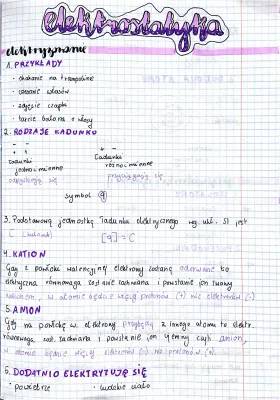 elektrostatyka
elektryzowanie
1. PRZYKŁADY
· skakanie na trampolinie
· czesanie włosów
· zdjęcie czapki
· tarcie balona o włosy
2. RODZAJE ŁADUNKU
- - + -
ładunki ładunki
jednoimienne różnoimienne
odpychają się przyciągają się
symbol q
3. Podstawową jednostką ładunku elektrycznego wg. ukł. SI jest
[q] = C
4. KATION
Gdy z powłoki walencyjnej elektrony zostaną oderwane to
elektryczna równowaga zostanie zachwiana i powstanie jon
w atomie będzie więcej protonów (+) niż elektronów (-)
5. ANION
Gdy na powłokę w. elektrony przybędą z innego atomu to elektr.
równowaga zost. zachwiana i powstanie jon ujemny czyli anion,
w atomie będzie więcej elektronów (-) niż protonów (+).
6. DODATNIO ELEKTRYZUJE SIĘ
· powietrze · ludzkie ciało